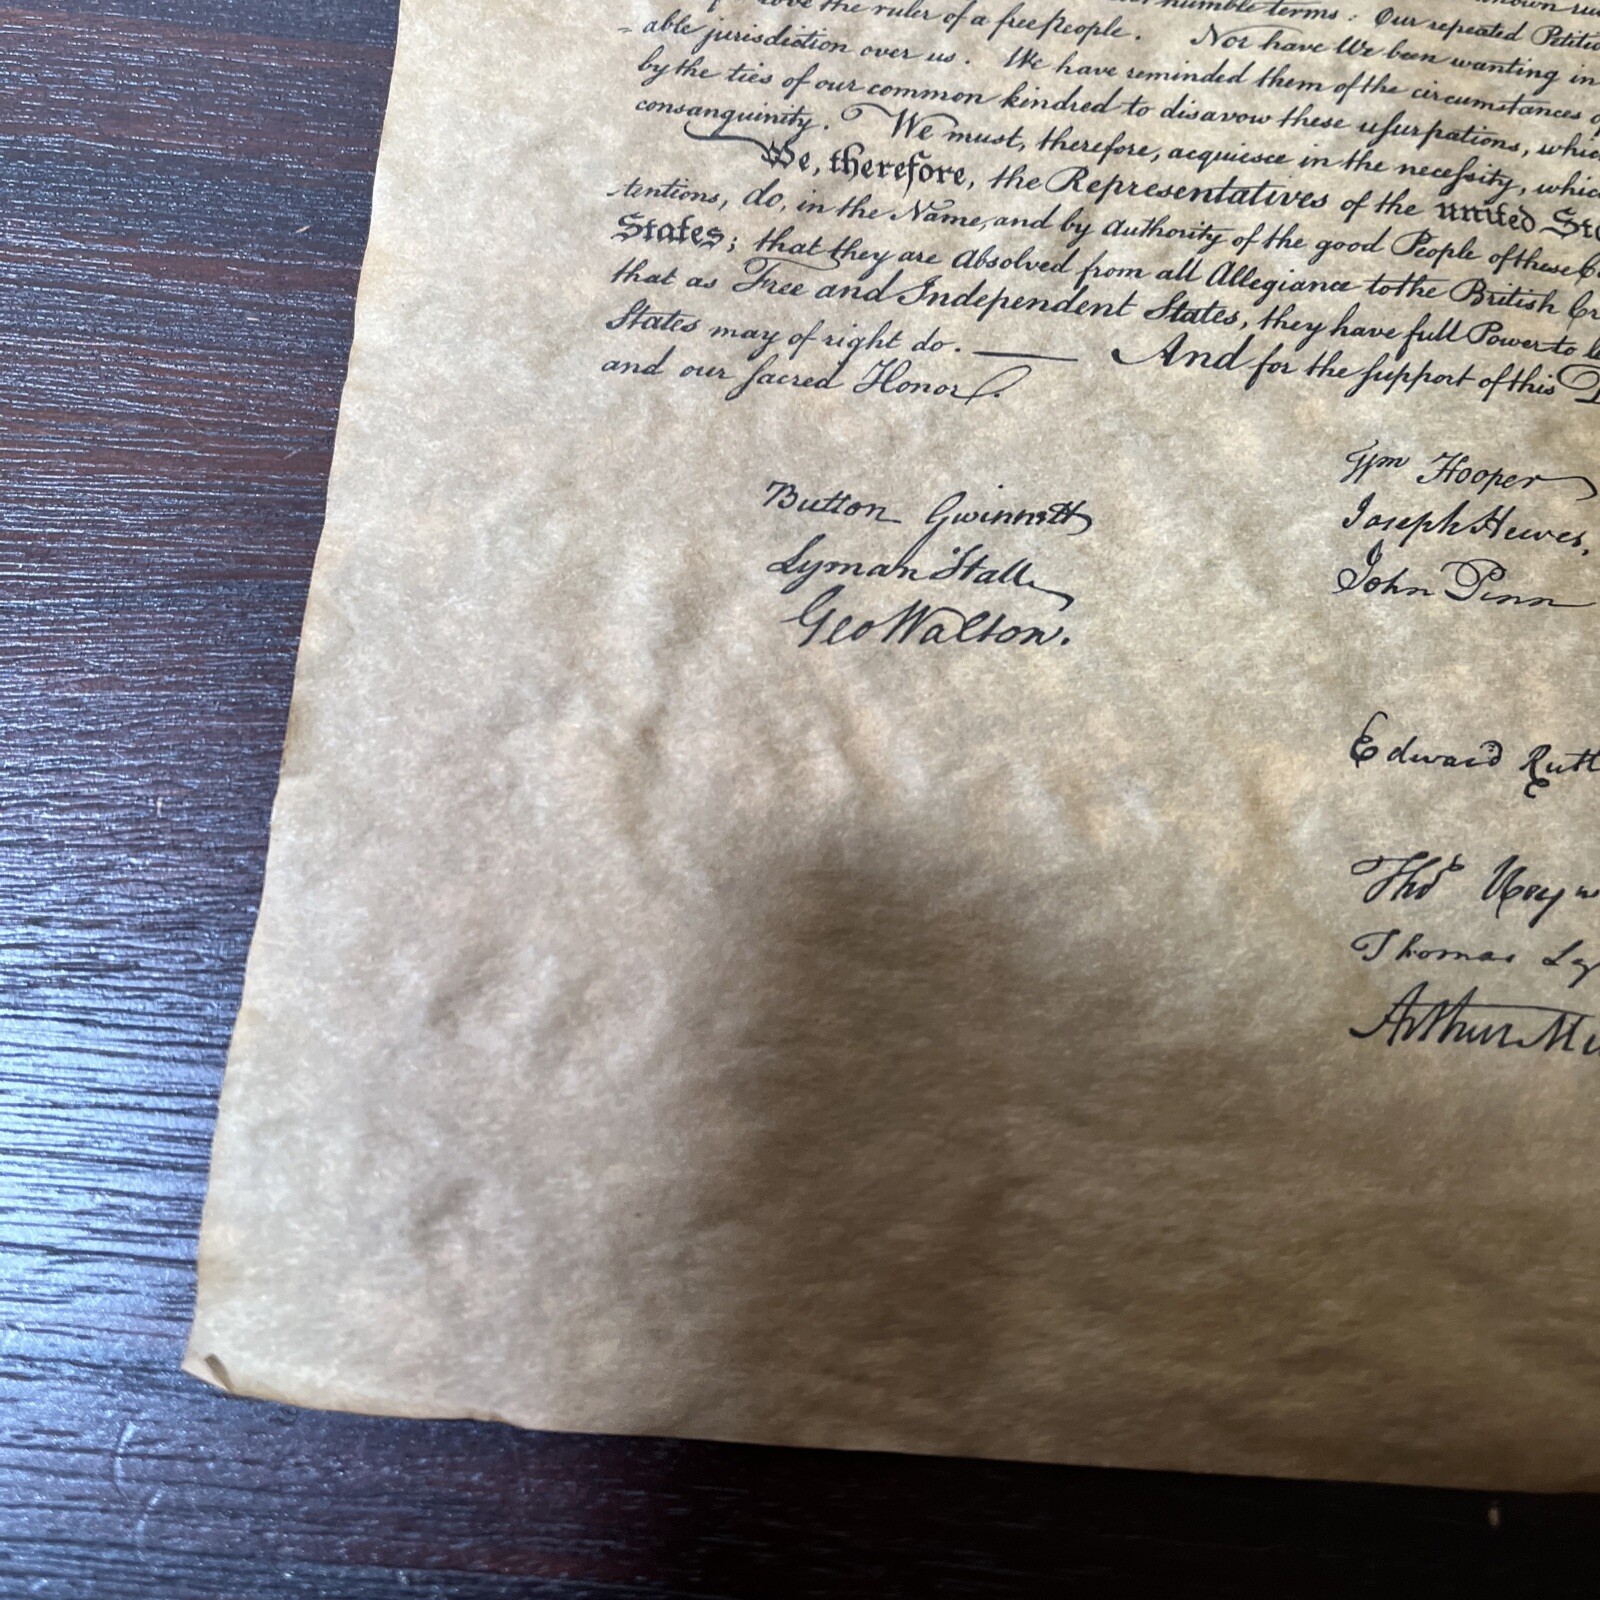 love the ruler of a free people. humble terms: Our repeated
able jurisdiction over us. Nor have We been wanting in
by the ties of our common kindred to disavow these usurpations, We have reminded them of the circumstances
consanquinity. We must, therefore, acquiesce in the necessity,
We, therefore, the Representatives of the united
tentions, do, in the Name, and by Authority of the good People of these
States; that they are Absolved from all Allegiance to the British
that as Free and Independent States, they have full Power to
States may of right do. — And for the support of this
and our sacred Honor.
Button Gwinnett
Lyman Hall
Geo Walton.
Wm Hooper
Joseph Hewes,
John Penn
Edward
Thos
Thomas
Arthur